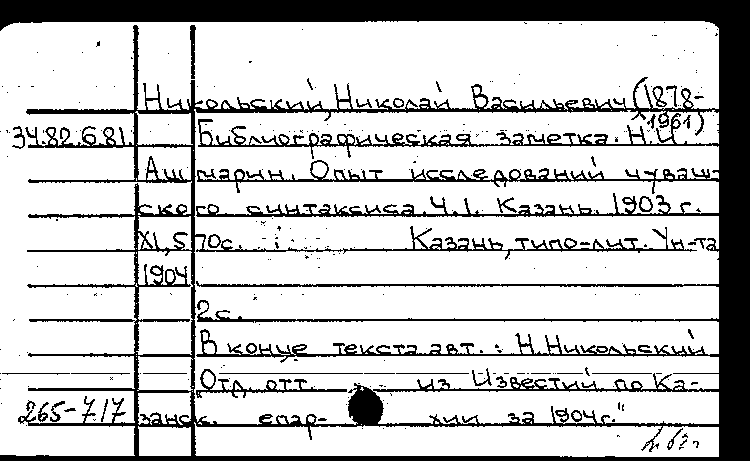 Никольский, Николай Васильевич (1878-
1961)
34.82.6.81. Библиографическая заметка. Н.И.
Ашмарин. Опыт исследований чуваш-
ского синтаксиса. Ч.I. Казань. 1903 г.
XI, 570с. Казань, типо-лит. Ун-та,
1904.
2с.
В конце текста авт.: Н.Никольский
"Отд. отт. из Известий по Ка-
265-7.17 занск. епар- хии за 1904г."